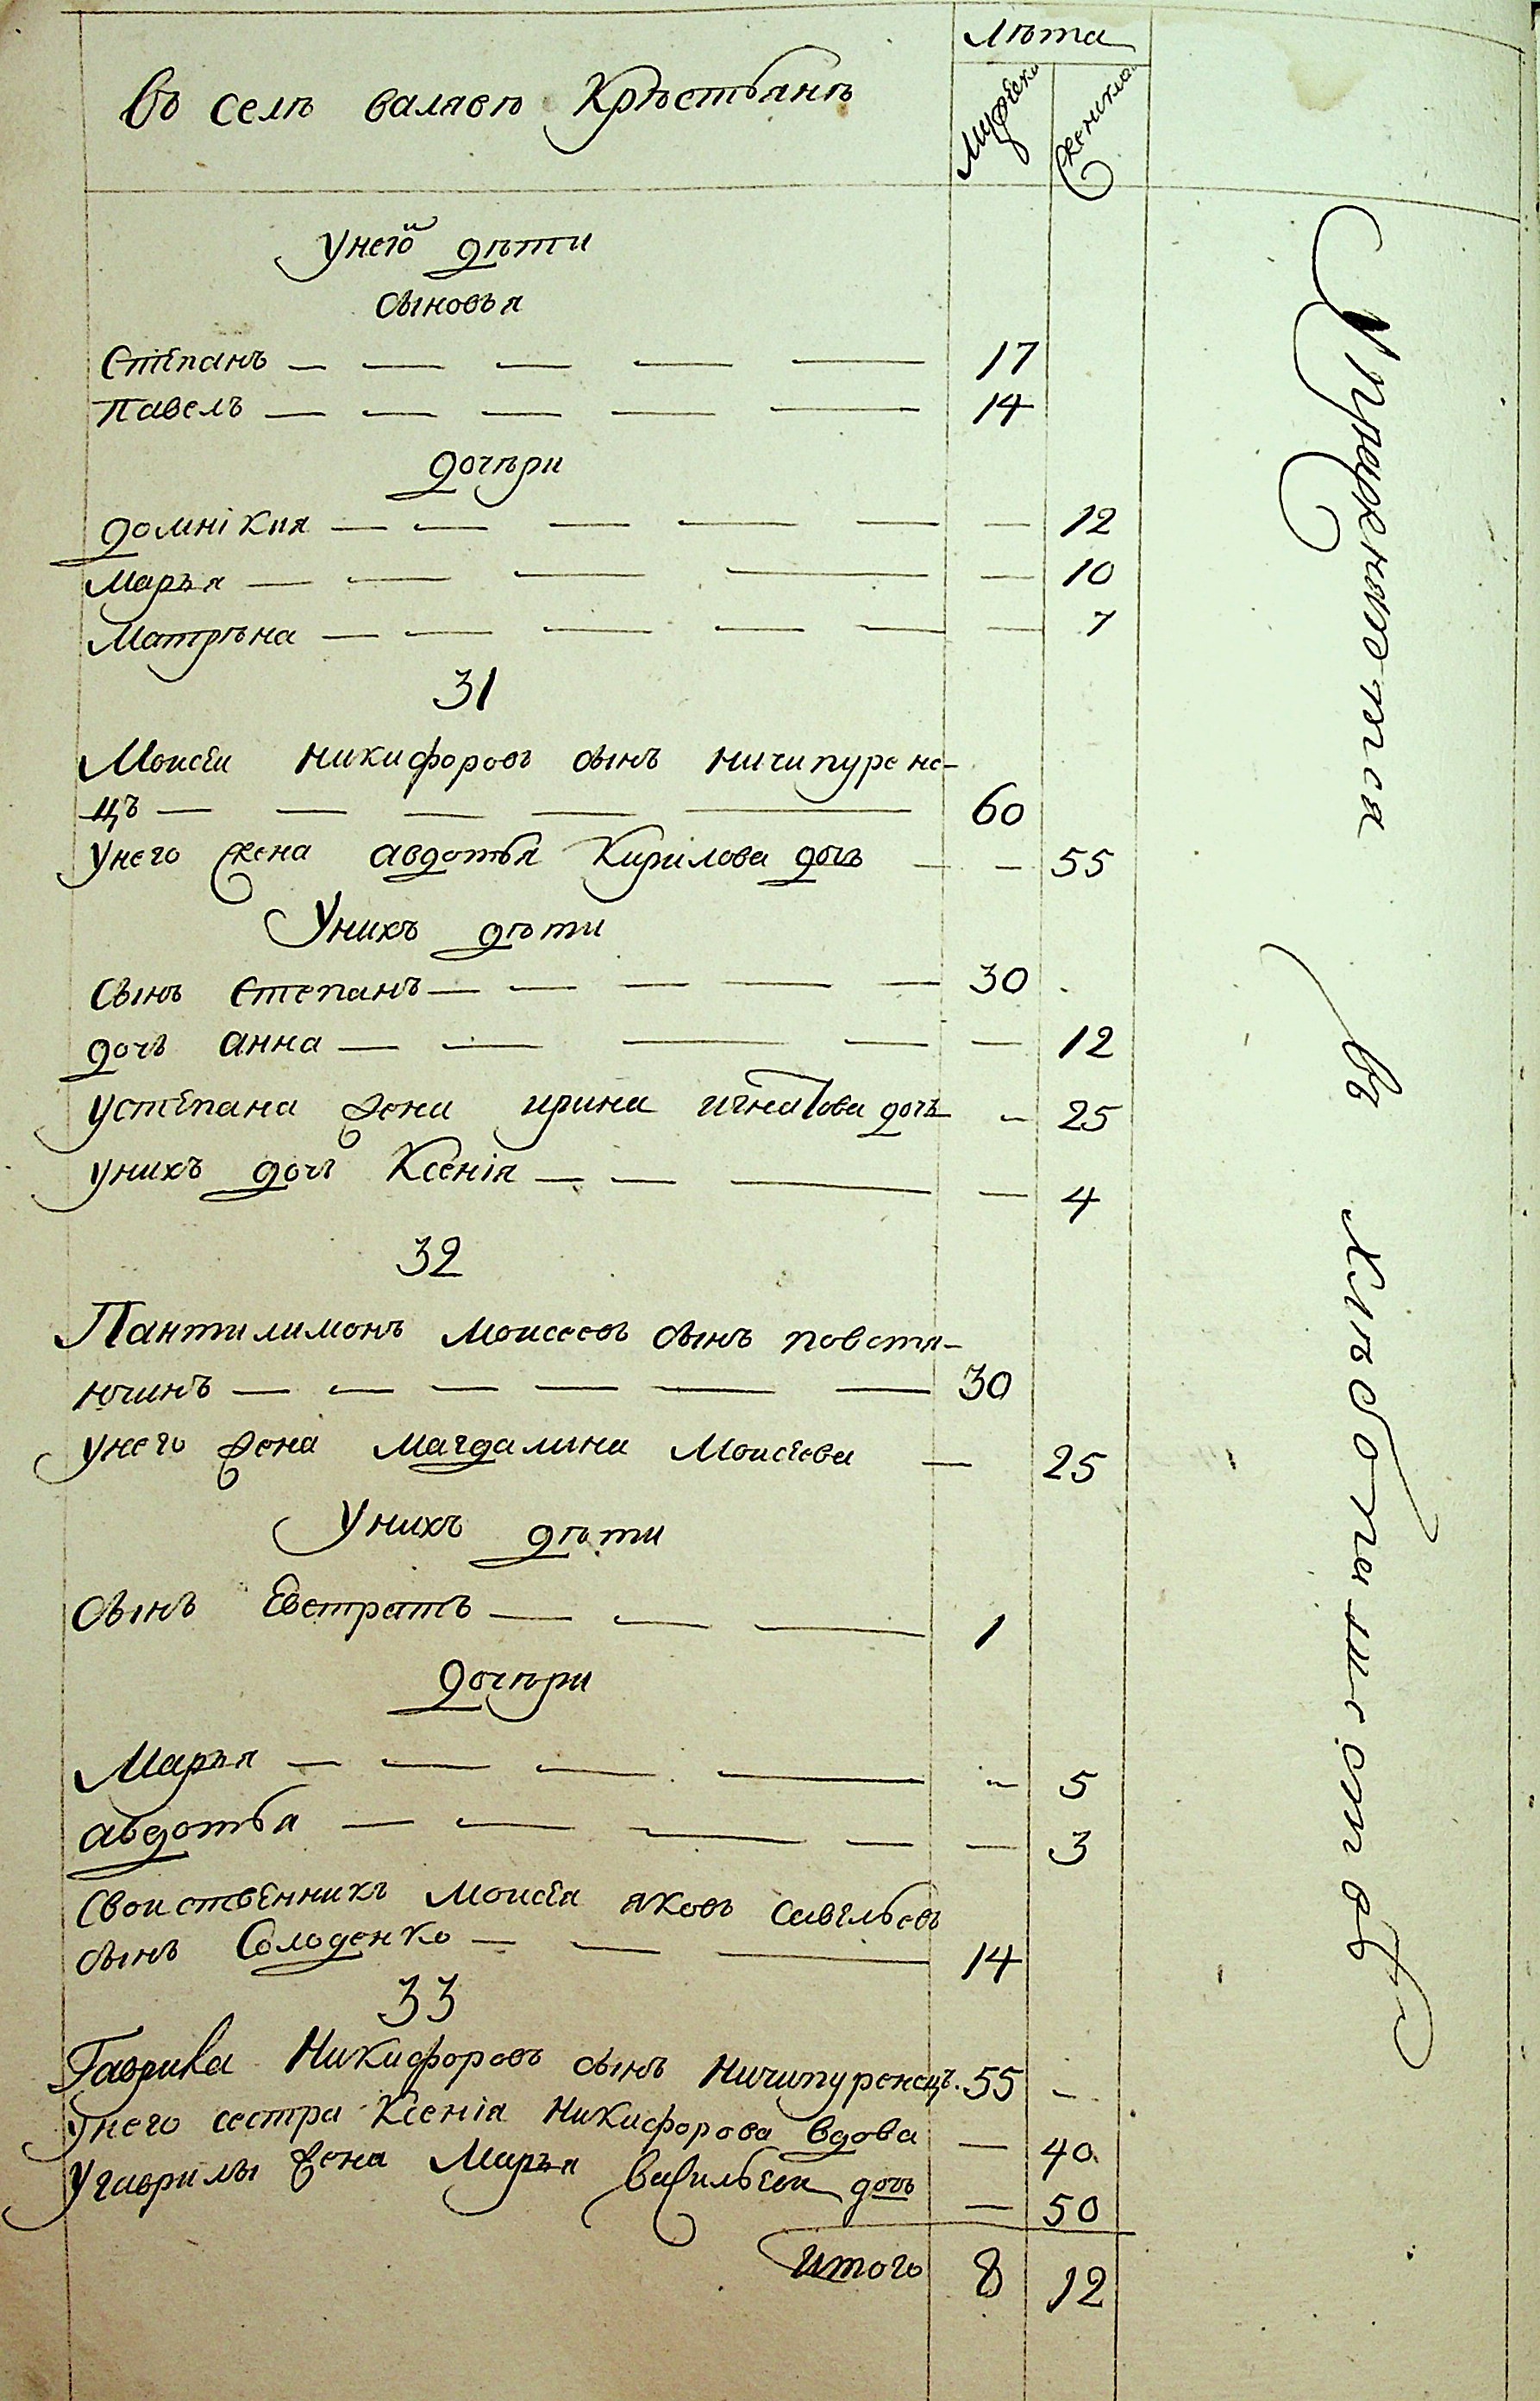 Лѣта
въ селѣ валявѣ Крѣстьянъ
Мужеска
Женска
У него дѣти
сыновья
Степанъ — — — — — 17
Павелъ — — — — — 14
дочѣри
домнікия — — — — — — 12
Марья — — — — — 10
Матрѣна — — — — — — 7
31
Моисеи Никифоровъ сынъ ничипуроне-
цъ — — — — — 60
У него жена авдотья Кирилова дочь — — 55
У нихъ дѣти
сынъ степанъ — — — — — 30
дочь анна — — — — — 12
у степана жена ирина игнатова дочь — 25
у нихъ дочь Ксенія — — — — 4
32
Пантилимонъ Моисеевъ сынъ повстя-
ючинъ — — — — — — 30
у него жена магдалина Моисеева — 25
У нихъ дѣти
сынъ Евстратъ — — — 1
дочѣри
Марья — — — — — 5
авдотья — — — — — 3
своиственникъ Моисея яковъ савельевъ
сынъ Солоденко — — — 14
33
Гаврила Никифоровъ сынъ Ничипуренецъ. 55 —
у него сестра Ксенія Никифорова вдова — 40
У гаврилы жена Марья васильева дочь — 50
итого 8 12